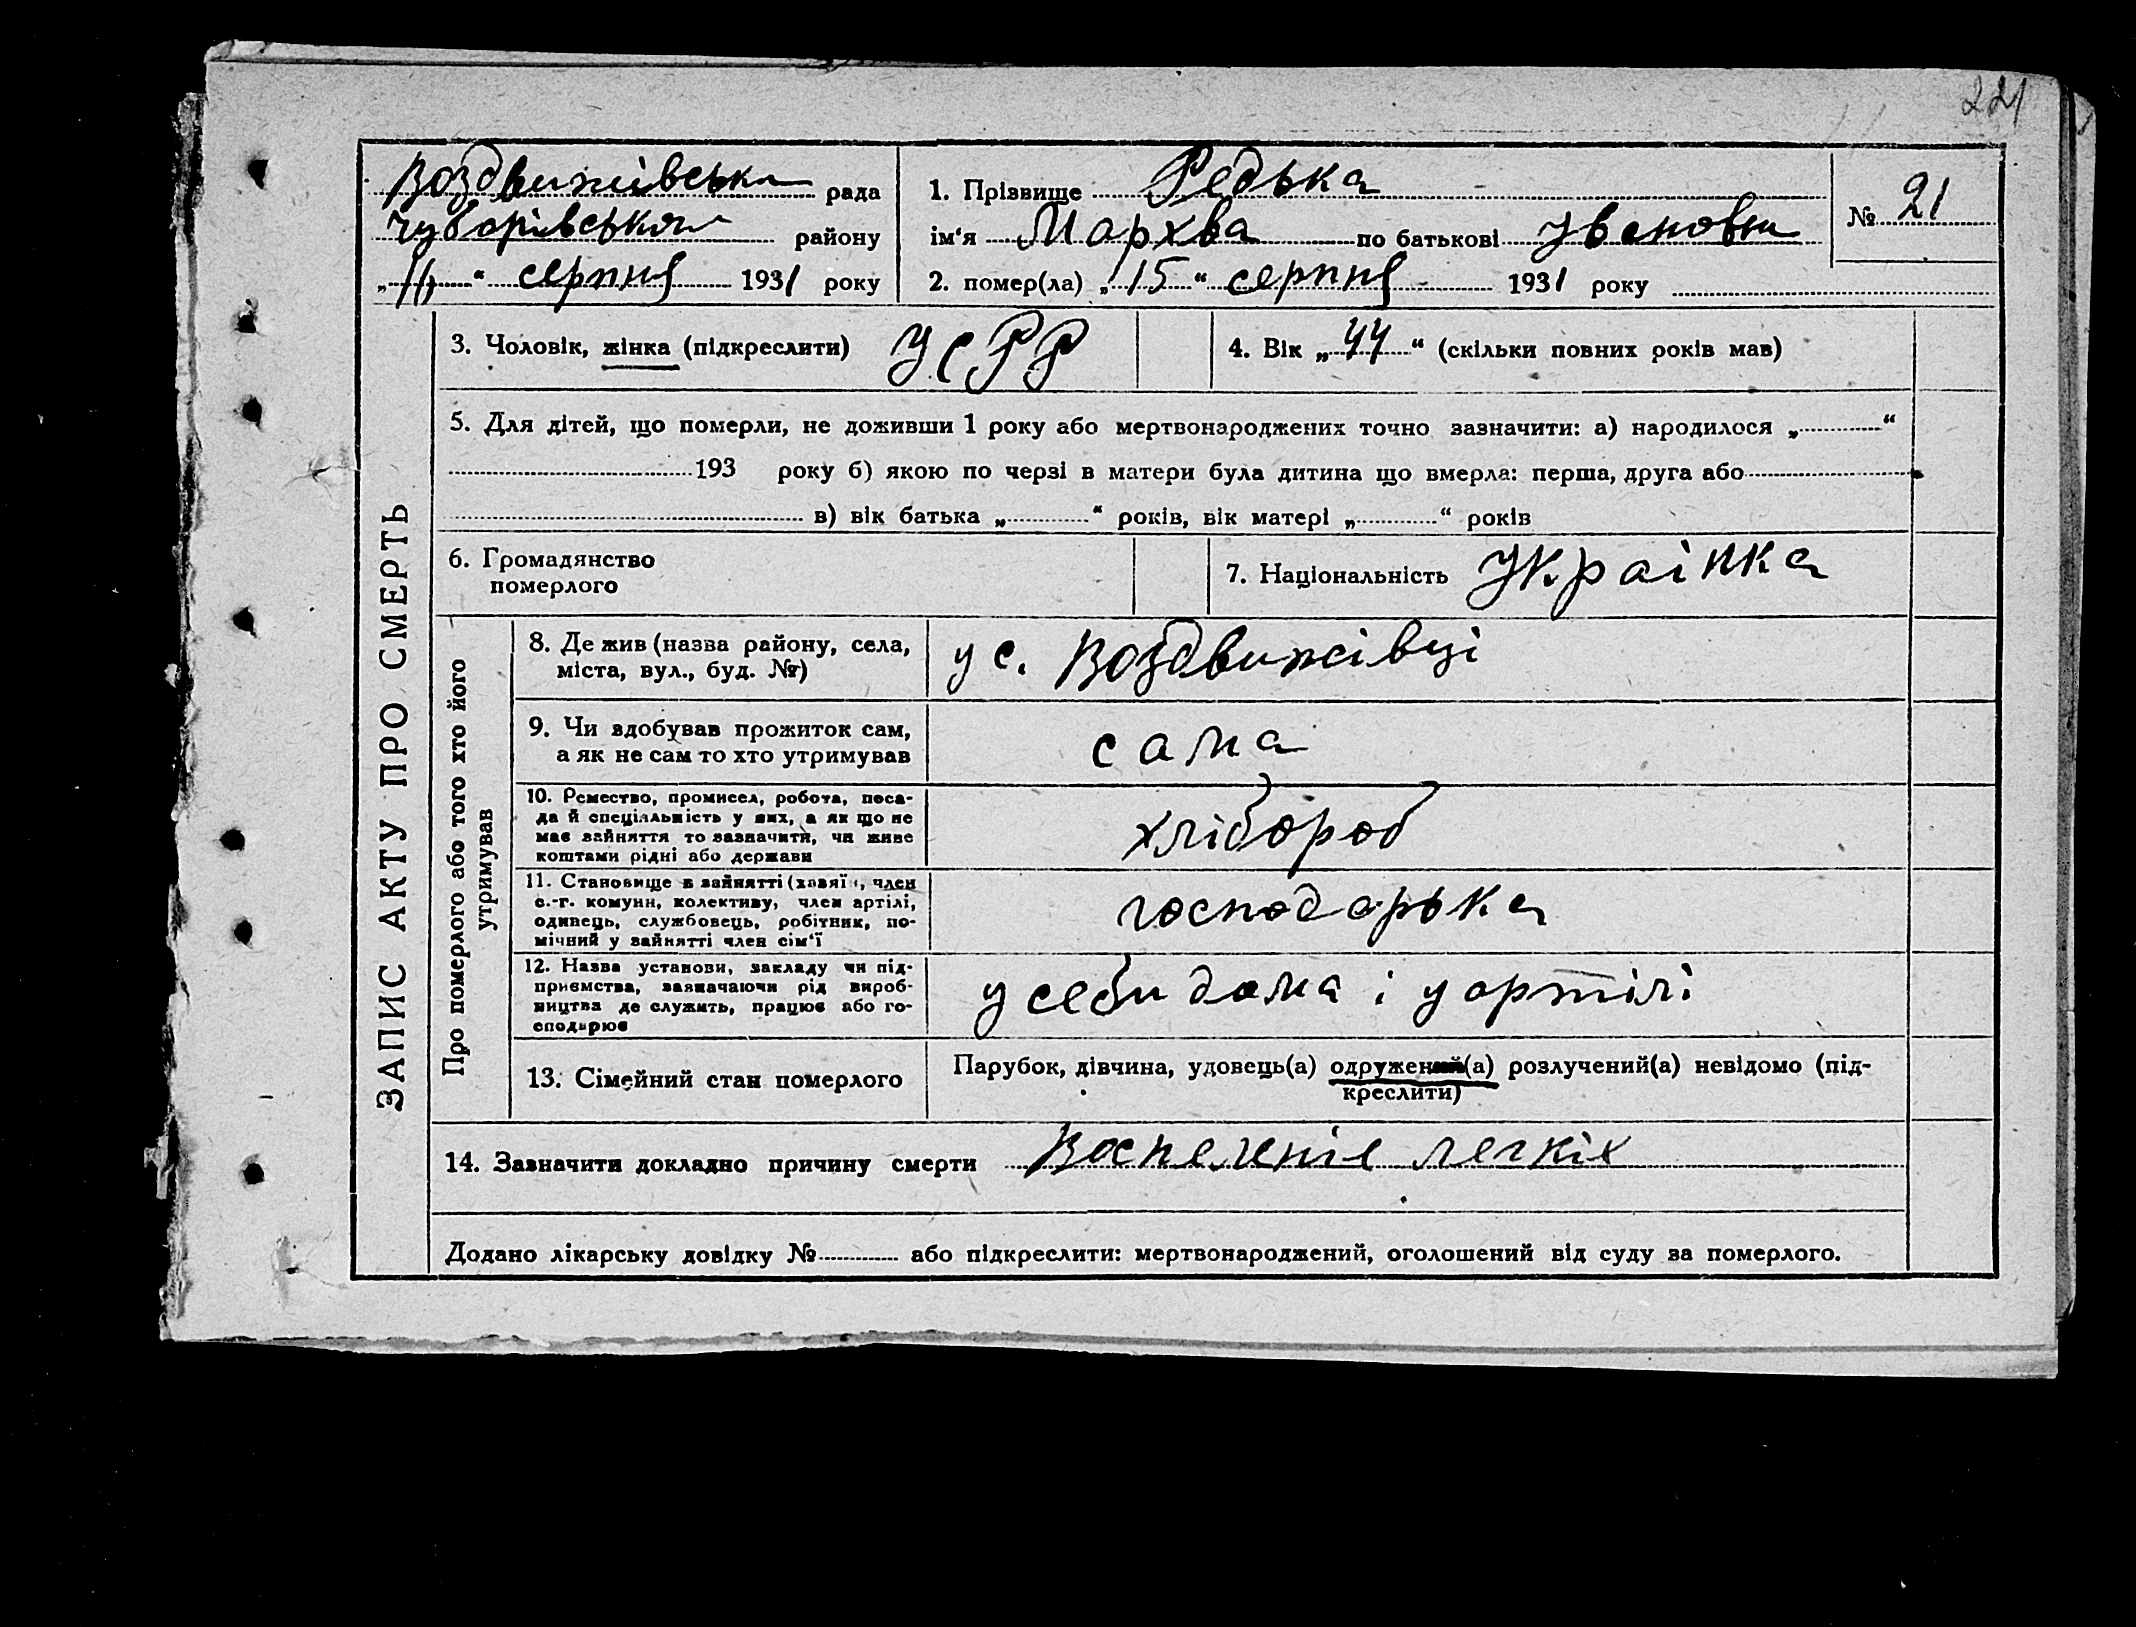 221
Воздвижівська рада
Чубарівського району
„ " серпня 1931 року
1. Прізвище Редька
ім‘я Мархва по батькові Івановна
№ 21
2. помер(ла) „15“ серпня 1931 року
3. Чоловік, жінка (підкреслити) УСРР
4. Вік „44“ (скільки повних років мав)
5. Для дітей, що померли, не доживши 1 року або мертвонароджених точно зазначити: а) народилося „ “
193 року б) якою по черзі в матери була дитина що вмерла: перша, друга або
в) вік батька „ “ років, вік матері „ “ років
6. Громадянство
померлого
7. Національність Українка
ЗАПИС АКТУ ПРО СМЕРТЬ
Про померлого або того хто його
утримував
8. Де жив (назва району, села,
міста, вул., буд. №)
у с. Воздвижівці
9. Чи здобував прожиток сам,
а як не сам то хто утримував
сама
10. Ремество, промисел, робота, поса-
да й спеціальність у них, а як що не
має зайняття то зазначити, чи живе
коштами рідні або держави
хлібороб
11. Становище в зайнятті (хазяї , член
с.-г. комуни, колективу, член артілі,
одинець, службовець, робітник, по-
мічний у зайнятті член сім‘ї
господарька
12. Назва установи, закладу чи під-
приємства, зазначаючи рід вироб-
ництва де служить, працює або го-
сподарює
у себи дома і у артілі
13. Сімейний стан померлого
Парубок, дівчина, удовець(а) одружений(а) розлучений(а) невідомо (під-
креслити)
14. Зазначити докладно причину смерти Воспеленіе легкіх
Додано лікарську довідку № або підкреслити: мертвонароджений, оголошений від суду за померлого.